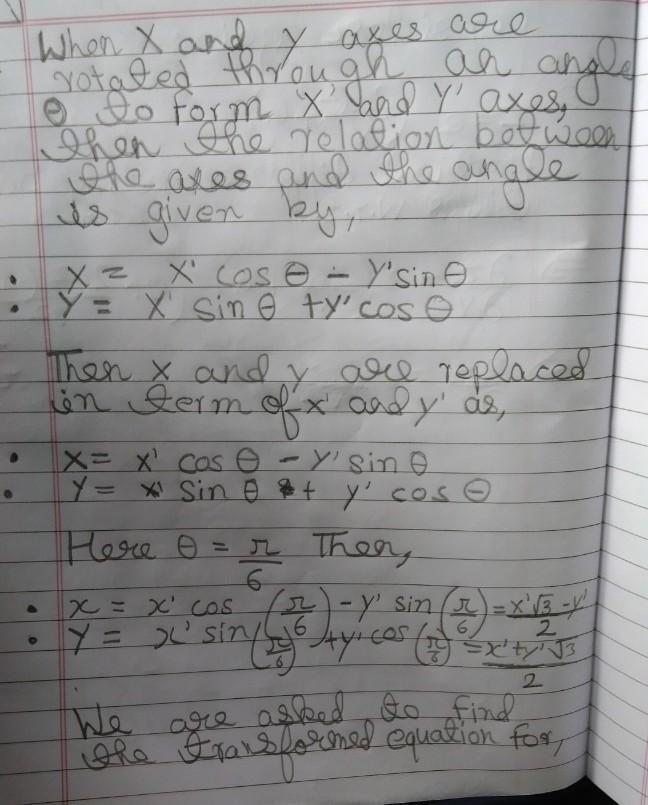 When X and y axes are
rotated through an angle
θ to form X' and Y' axes,
then the relation between
the axes and the angle
is given by,
• X = X' cos θ - Y' sin θ
• Y = X' sin θ + Y' cos θ
Then x and y are replaced
in term of x' and y' as,
• X = x' cos θ - y' sin θ
• Y = x' sin θ + y' cos θ
Here θ = π/6 Then,
• x = x' cos (π/6) - y' sin (π/6) = x'√3 - y'/2
• Y = x' sin (π/6) + y' cos (π/6) = x' + y'√3/2
We are asked to find
the transformed equation for,